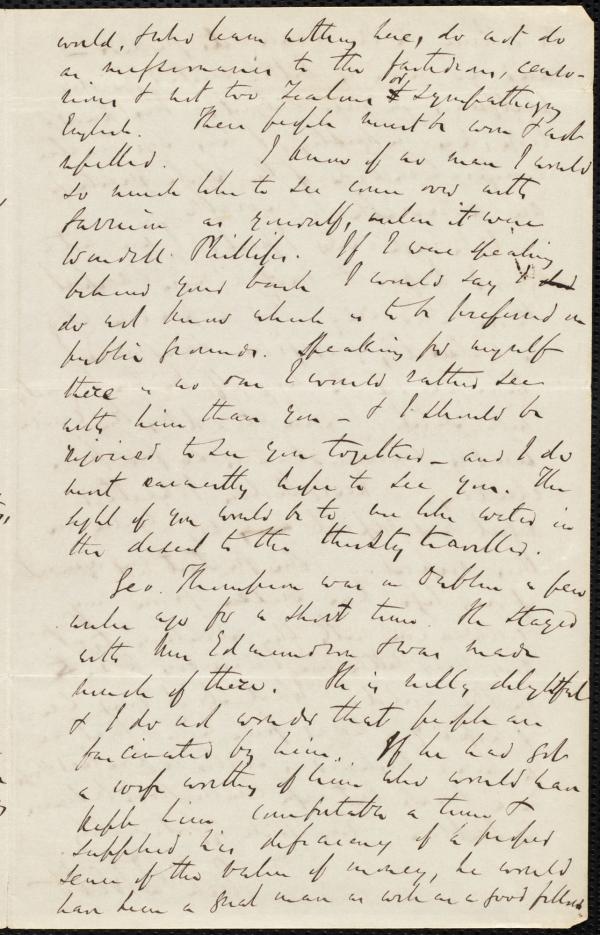 world, & who learn nothing here, do not do
as missionaries to the fastidious, censo-
rious & not too zealous or sympathizing
English. These people must be won & not
repelled. I know of no man I would
so much like to see come over with
Garrison as yourself, unless it were
Wendell Phillips. If I were speaking
behind your back I would say I
do not know which is to be preferred on
public grounds. Speaking for myself
there is no one I would rather see
with him than you - & I should be
rejoiced to see you together - and I do
most earnestly hope to see you. The
sight of you would be to me like water in
the desert to the thirsty traveller.
Geo. Thompson was in Dublin a few
weeks ago for a short time. He stayed
with Mrs Edmundson & was made
much of there. He is really delightful
& I do not wonder that people are
fascinated by him. If he had got
a wife worthy of him who would have
kept him comfortable &
supplied his deficiency of a proper
sense of the value of money, he would
have been a great man as well as a good fellow